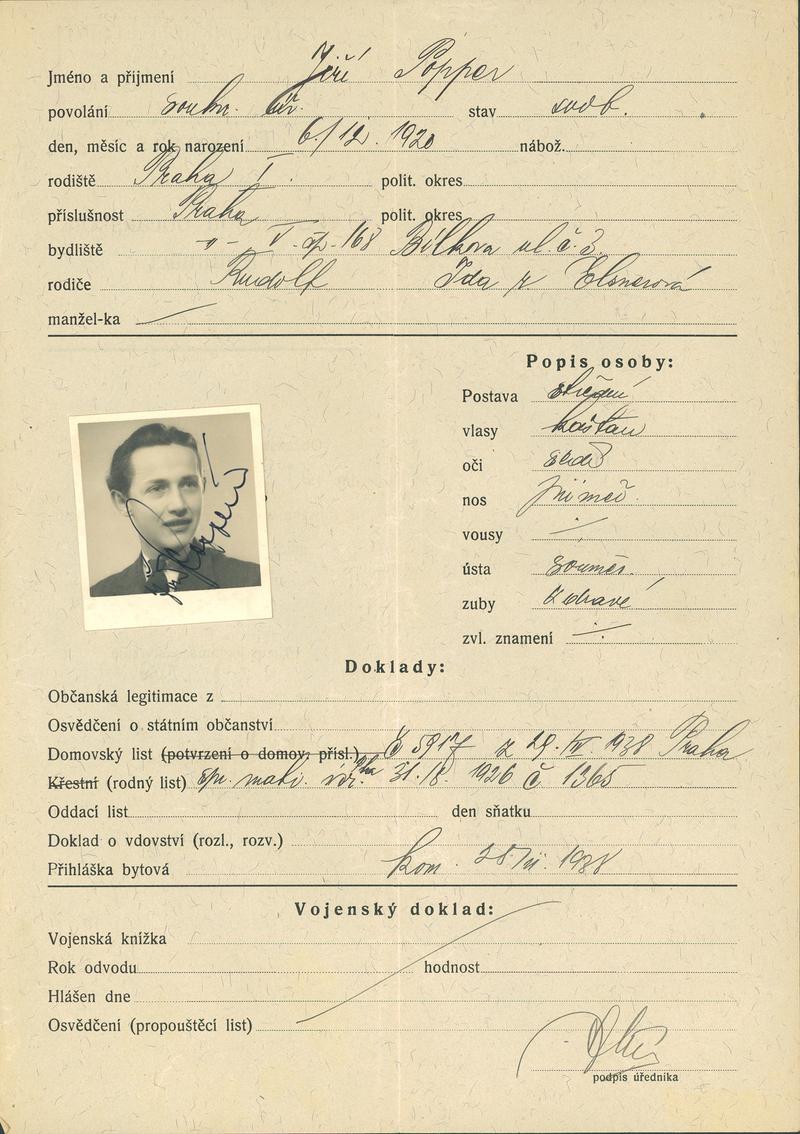 Jméno a přijmení Jiří Popper
povolání soukr. úř. stav svob.
den, měsíc a rok narození 6./12. 1920 nábož.
rodiště Praha I. polit. okres
příslušnost Praha polit. okres
bydliště -"- V- čp- 168 Bílkova ul. č. 3.
rodiče Rudolf Ida r Elsnerová
manžel-ka
Popis osoby:
Postava střední
vlasy kaštan
oči šedé
nos přiměř.
vousy
ústa souměr.
zuby zdravé
zvl. znamení
Doklady:
Občanská legitimace z
Osvědčení o státním občanství
Domovský list (potvrzení o domov. přísl.) Č 5917 z 29. 1938 Praha
Křestní (rodný list) matr. 31./8. 1926 č 1365
Oddací list den sňatku
Doklad o vdovství (rozl., rozv.)
Přihláška bytová kom. 1938
Vojenský doklad:
Vojenská knížka
Rok odvodu hodnost
Hlášen dne
Osvědčení (propouštěcí list)
podpis úředníka